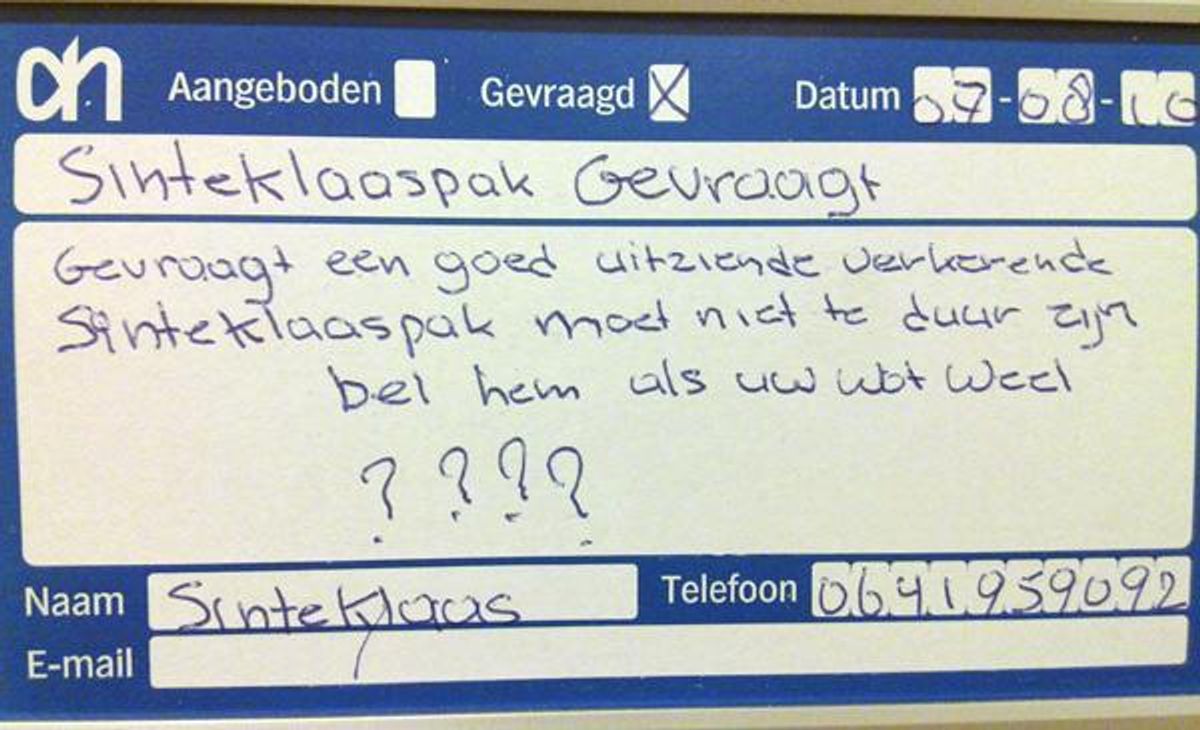 ah Aangeboden Gevraagd X Datum 07-08-10
Sinteklaaspak Gevraagt
Gevraagt een goed uitziende verkerende
Sinteklaaspak moet niet te duur zijn
bel hem als uw wat weet
? ? ? ?
Naam Sinteklaas Telefoon 0641959092
E-mail